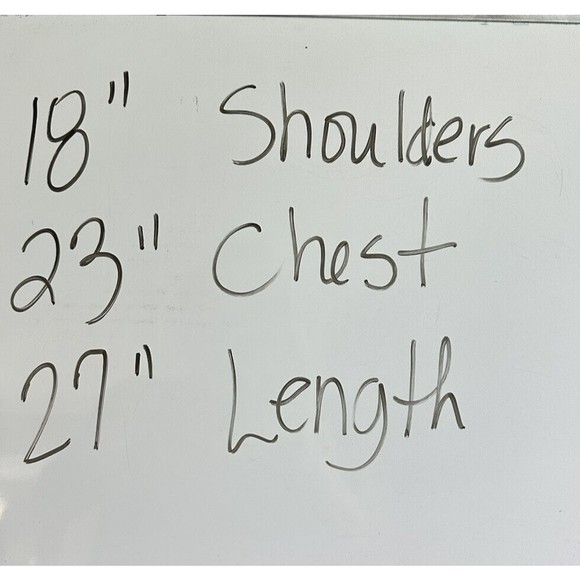 18" Shoulders
23" Chest
27" Length